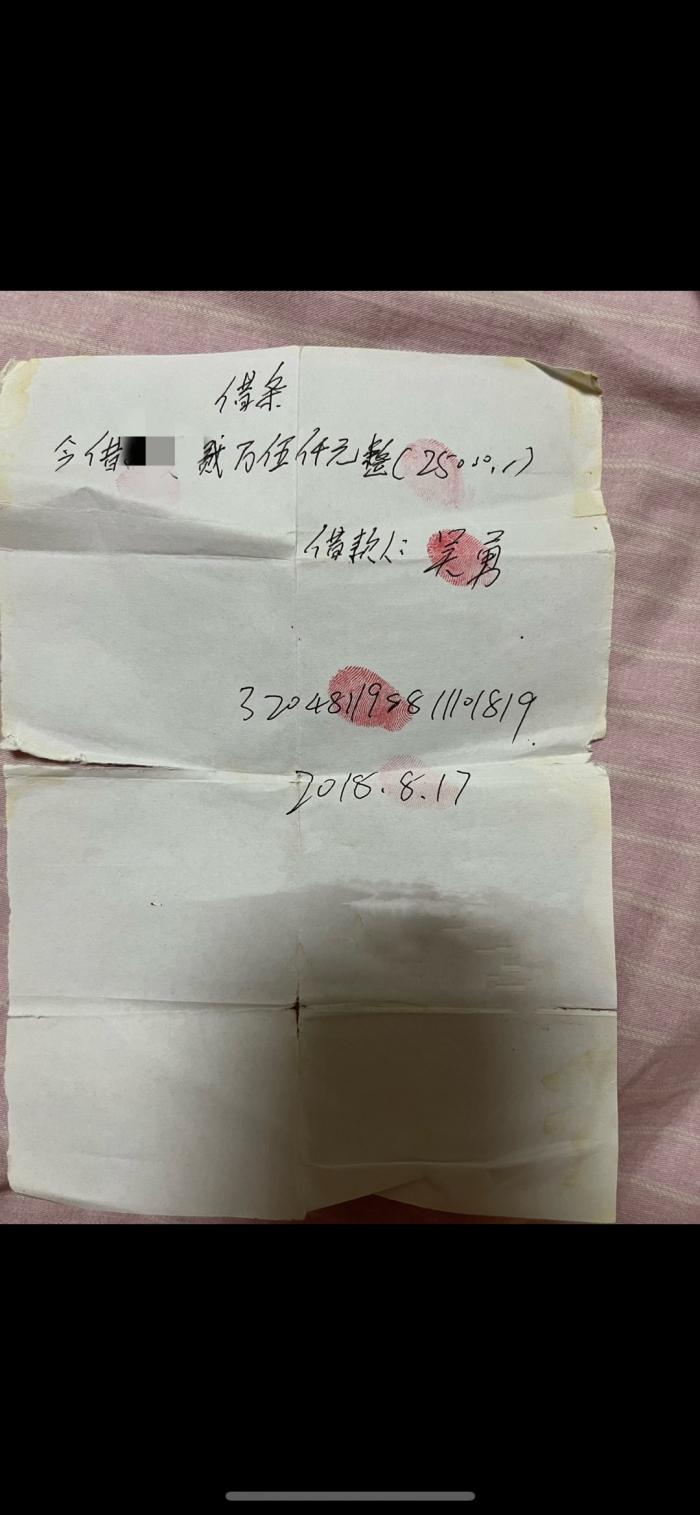 借条
今借 贰万伍仟元整(25000.-)
借款人: 吴勇
320481199811101819
2018.8.17